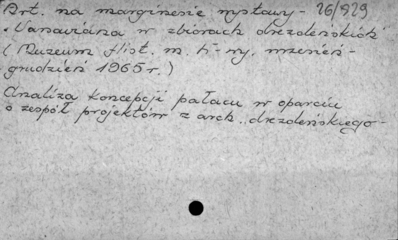 Art. na marginesie wystawy - 26/929
"Varsaviana w zbiorach drezdeńskich"
(Muzeum Hist. m. W-wy, wrzesień -
grudzień 1965 r.)
Analiza koncepcji pałacu w oparciu
o zespół projektów z arch. drezdeńskiego -